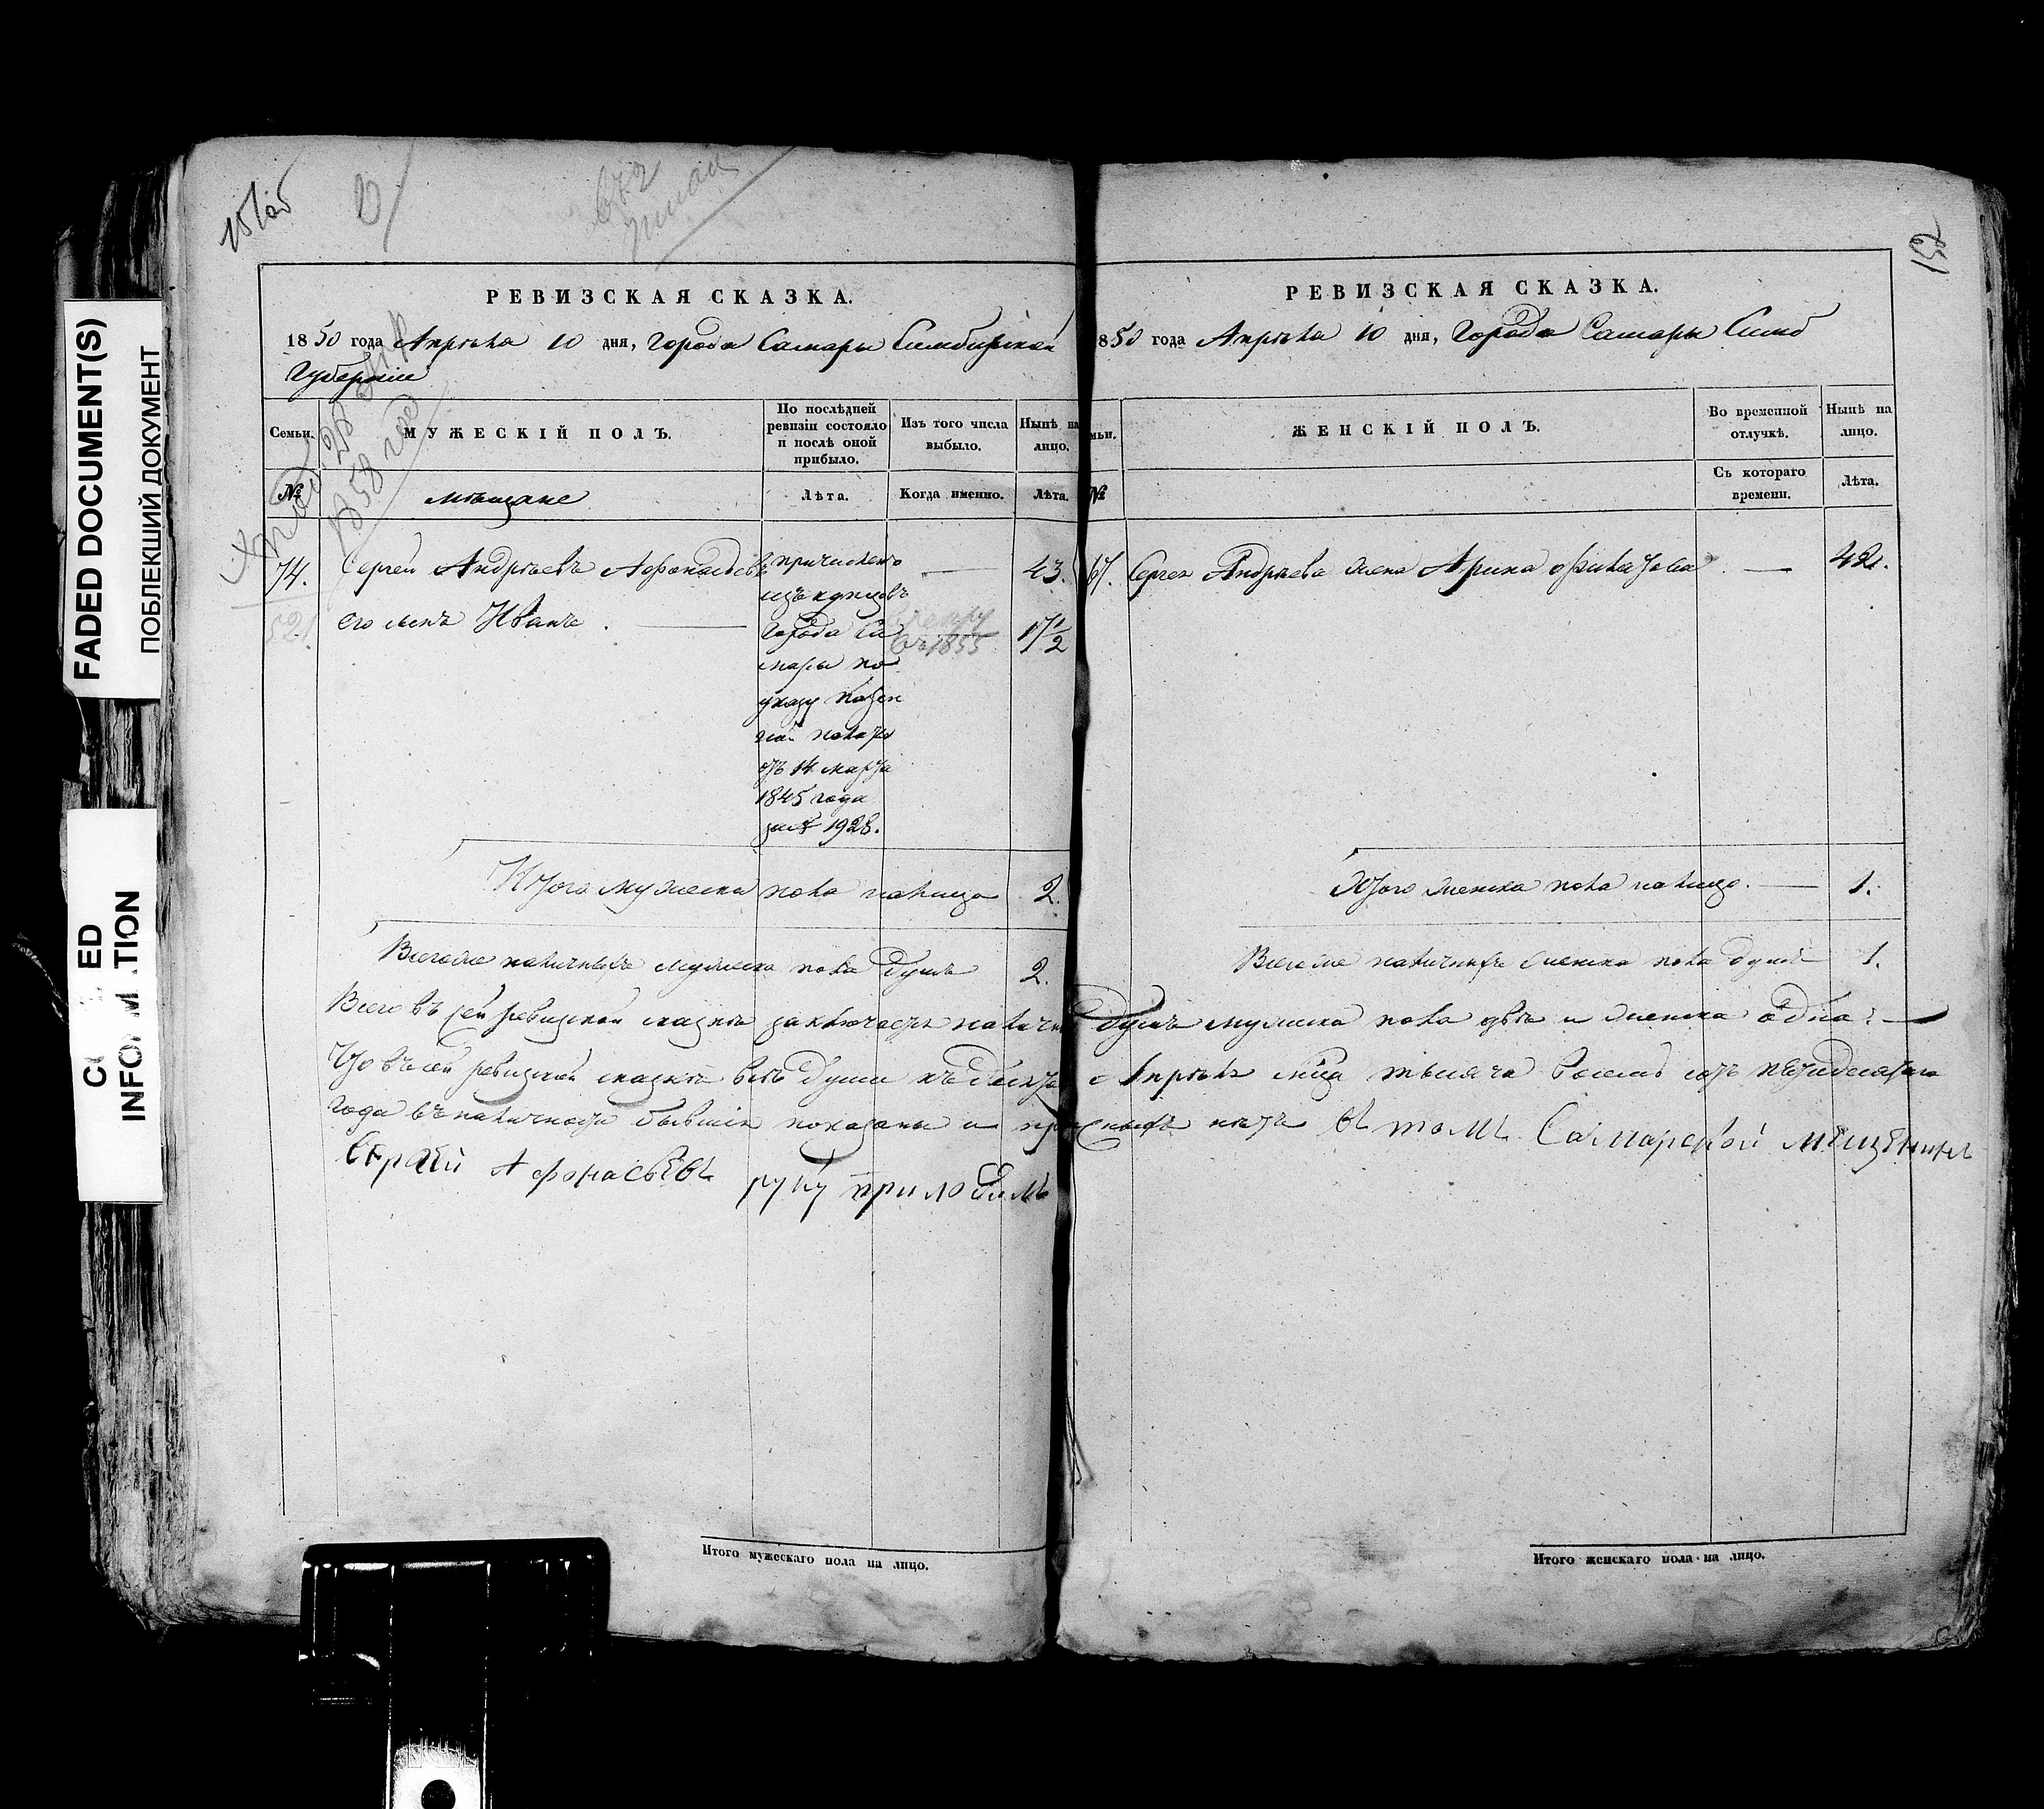 151 об
РЕВИЗСКАЯ СКАЗКА.
1850 года Апрѣля 10 дня, города Самары Симбирской
Губерніи
Семьи.
МУЖЕСКІЙ ПОЛЪ.
По послѣдней ревизіи состояло и послѣ оной прибыло.
Изъ того числа выбыло.
Нынѣ на лицо.
№
мѣщане
Лѣта.
Когда именно.
Лѣта.
74. Сергей Андрѣевъ Афонасьевъ
причислено
изъ купцовъ
города Са
мары по
указу Казен
ной палаты
отъ 14 марта
1845 года
за № 1928.
43.
его сынъ Иванъ.
въ 1855
17 1/2
Итого мужеска пола налицо 2.
Всего же наличныхъ мужеска пола душъ 2.
РЕВИЗСКАЯ СКАЗКА.
152
850 года Апрѣля 10 дня, Города Самары Симб
мьи.
ЖЕНСКІЙ ПОЛЪ.
Во временной отлучкѣ.
Нынѣ на лицо.
№
Съ котораго времени.
Лѣта.
Сергея Андрѣева жена Арина Филатова 42.
Итого женска пола налицо. 1.
Всего же наличныхъ женска пола душъ 1.
Всего въ сей ревизской сказкѣ заключается наличн душъ мужеска пола двѣ и женска одна.
Что въ сей ревизской сказкѣ всѣ души къ десято Апрѣля мца тысяча восемь сотъ пятидесятаго
года въ наличности бывшія показаны и нѣтъ въ томъ Самарской мещенинъ
Сергей Афонасьевъ руку приложилъ
Итого мужескаго пола на лицо.
Итого женскаго пола на лицо.
FADED DOCUMENT(S)
ПОБЛЕКШИЙ ДОКУМЕНТ